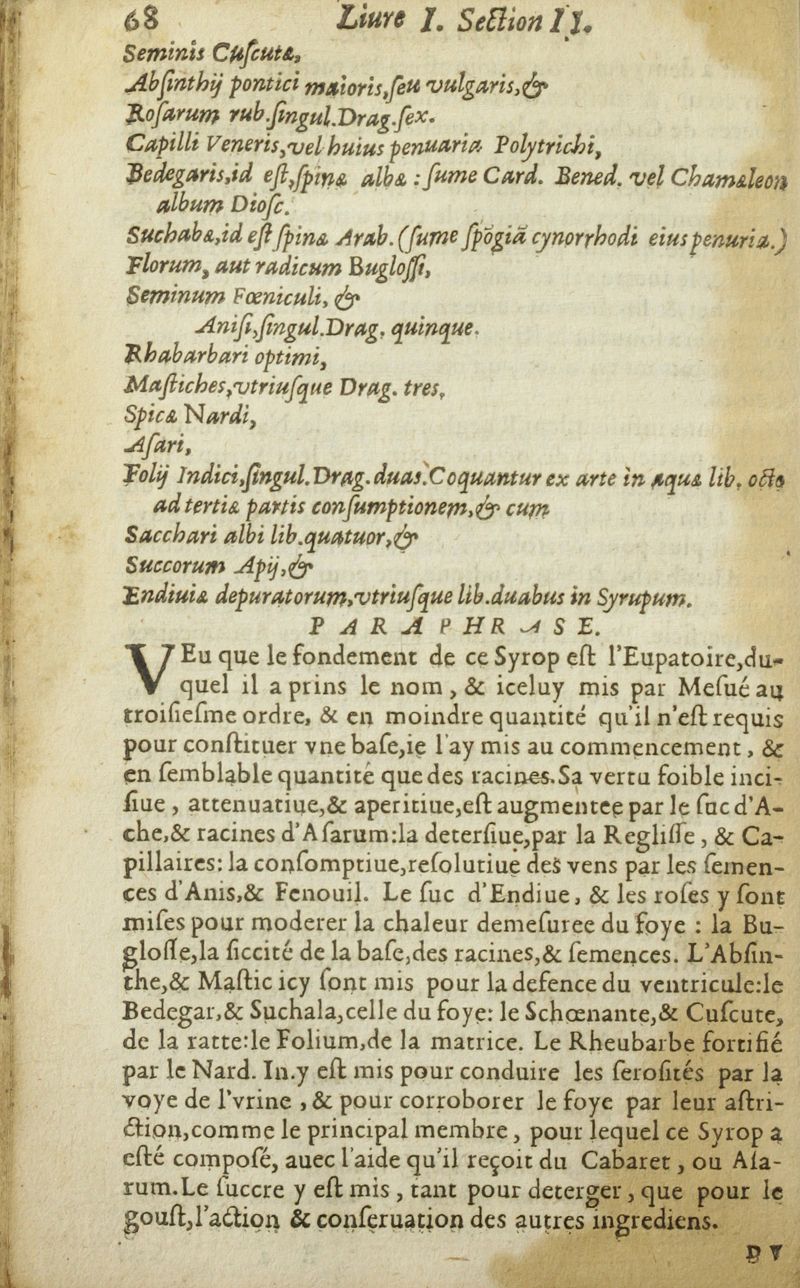 68 Liure I. Section II.
Seminis Cuſcutæ,
Abſinthij pontici maioris,ſeu vulgaris,&
Roſarum rub.ſingul.Drag.ſex.
Capilli Veneris,vel huius penuaria Polytrichi,
Bedegaris,id eſt,ſpinæ albæ : ſume Card. Bened. vel Chamæleon
album Dioſc.
Suchabæ,id eſt ſpinæ Arab. (ſume ſpōgiā cynorrhodi eius penuria.)
Florum, aut radicum Bugloſſi,
Seminum Fœniculi, &
Aniſi,ſingul.Drag. quinque.
Rhabarbari optimi,
Maſtiches,vtriuſque Drag. tres,
Spicæ Nardi,
Aſari,
Folij Indici,ſingul.Drag.duas.Coquantur ex arte in aquæ lib. octo
ad tertiæ partis conſumptionem,& cum
Sacchari albi lib.quatuor,&
Succorum Apij,&
Endiuiæ depuratorum,vtriuſque lib.duabus in Syrupum.
PARAPHRASE.
VEu que le fondement de ce Syrop eſt l'Eupatoire,du-
quel il a prins le nom , & iceluy mis par Meſué au
troiſieſme ordre, & en moindre quantité qu'il n'eſt requis
pour conſtituer vne baſe,ie l'ay mis au commencement , &
en ſemblable quantité que des racines.Sa vertu foible inci-
ſiue , attenuatiue,& aperitiue,eſt augmentee par le ſuc d'A-
che,& racines d'Aſarum:la deterſiue,par la Regliſſe , & Ca-
pillaires: la conſomptiue,reſolutiue des vens par les ſemen-
ces d'Anis,& Fenouil. Le ſuc d'Endiue, & les roſes y ſont
miſes pour moderer la chaleur demeſuree du foye : la Bu-
gloſſe,la ſiccité de la baſe,des racines,& ſemences. L'Abſin-
the,& Maſtic icy ſont mis pour la defence du ventricule:le
Bedegar,& Suchala,celle du foye: le Schœnante,& Cuſcute,
de la ratte:le Folium,de la matrice. Le Rheubarbe fortifié
par le Nard. In.y eſt mis pour conduire les ſeroſités par la
voye de l'vrine , & pour corroborer le foye par leur aſtri-
ction,comme le principal membre , pour lequel ce Syrop a
eſté compoſé, auec l'aide qu'il reçoit du Cabaret , ou Aſa-
rum.Le ſuccre y eſt mis , tant pour deterger , que pour le
gouſt,l'action & conſeruation des autres ingrediens.
DV